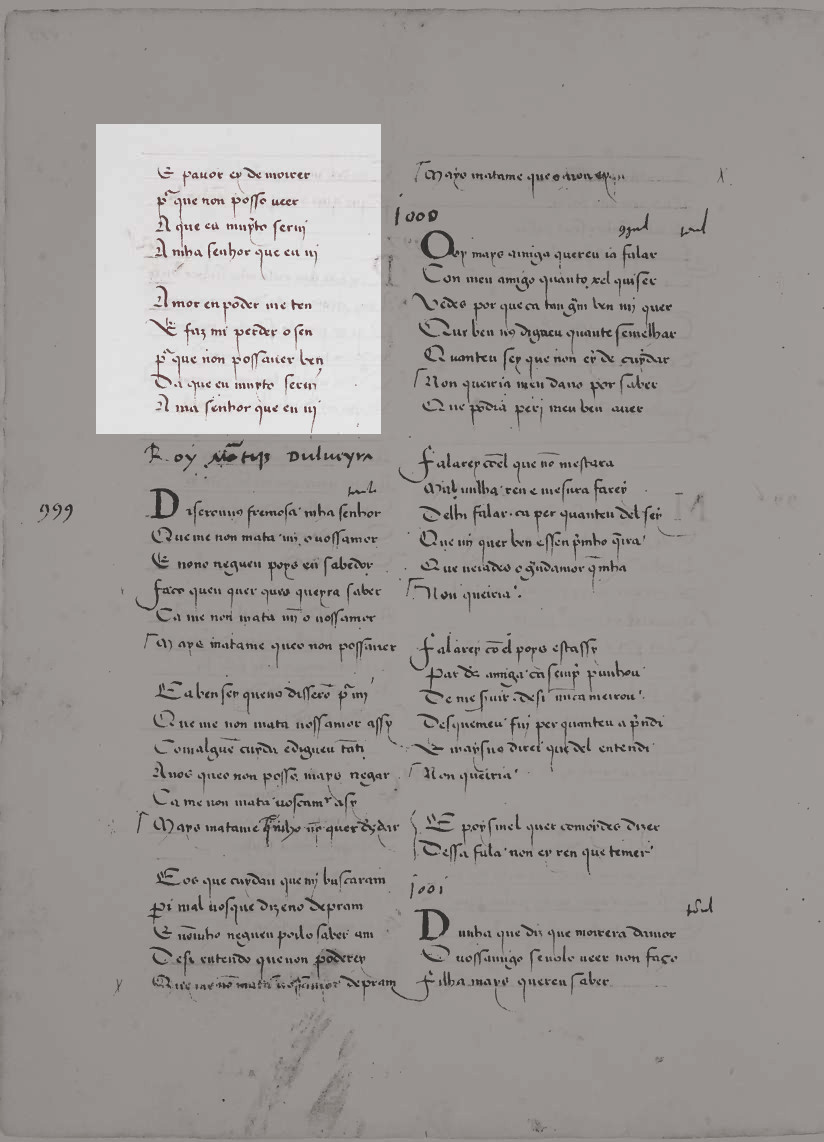 E pauor ey de morrer
que non posso ueer
A que eu muyto serui
A mha senhor que eu ui
Amor en poder me ten
E faz mi perder o sen
que non poss auer ben
Da que eu muyto serui
A ma senhor que eu ui
Roy Martĩs Dulueyra
999
Diseronus fremosa mha senhor
Que me non mata mi o uossamor
E nono negueu poys eu sabedor
faço queu quer quro queyra saber
Ca me non mata mi o uossamor
Mays matame queo non possauer
Ca ben sey queuo disserõ
Que me non mata uossamor assy
Comalguẽ cuyda edigueu
Auos queo non posso mays negar
Ca me non mata
Mays matame
Eos que cuydan que mj buscaram
Per mal uosque dizeno depram
E negueu polo saber am
Desi entendo que non poderey
depram
Mays matame que o non
1000
Oy mays amiga quereu ia falar
Con meu amigo quanto xel quiser
Vedes por que ca tan gm̃ ben mj quer
Que ben uꝯ digueu quante semelhar
Quanteu sey que non ey de cuydar
Non queiria meu dano por saber
Que podia perj meu ben auer
Falarey cõel que nõ mestara
Mal nulha ren e mesura farey
Delhi falar ca per quanteu del sey
Que mj quer ben
Non queiria
Falarey cõ el poys estassy
Par ds̃ amiga ca semp̃ punhou
De me desi nũca meirou
Des quemeu fuj per quanteu aprendi
E mays direi que del entendi
Non queiria
E poys mel quer comoydes dizer
Dessa fala non ey ren que temer
1001
Dunha que diz que moirera damor
O uossamigo se uolo ueer non faço
Filha mays quereu saber